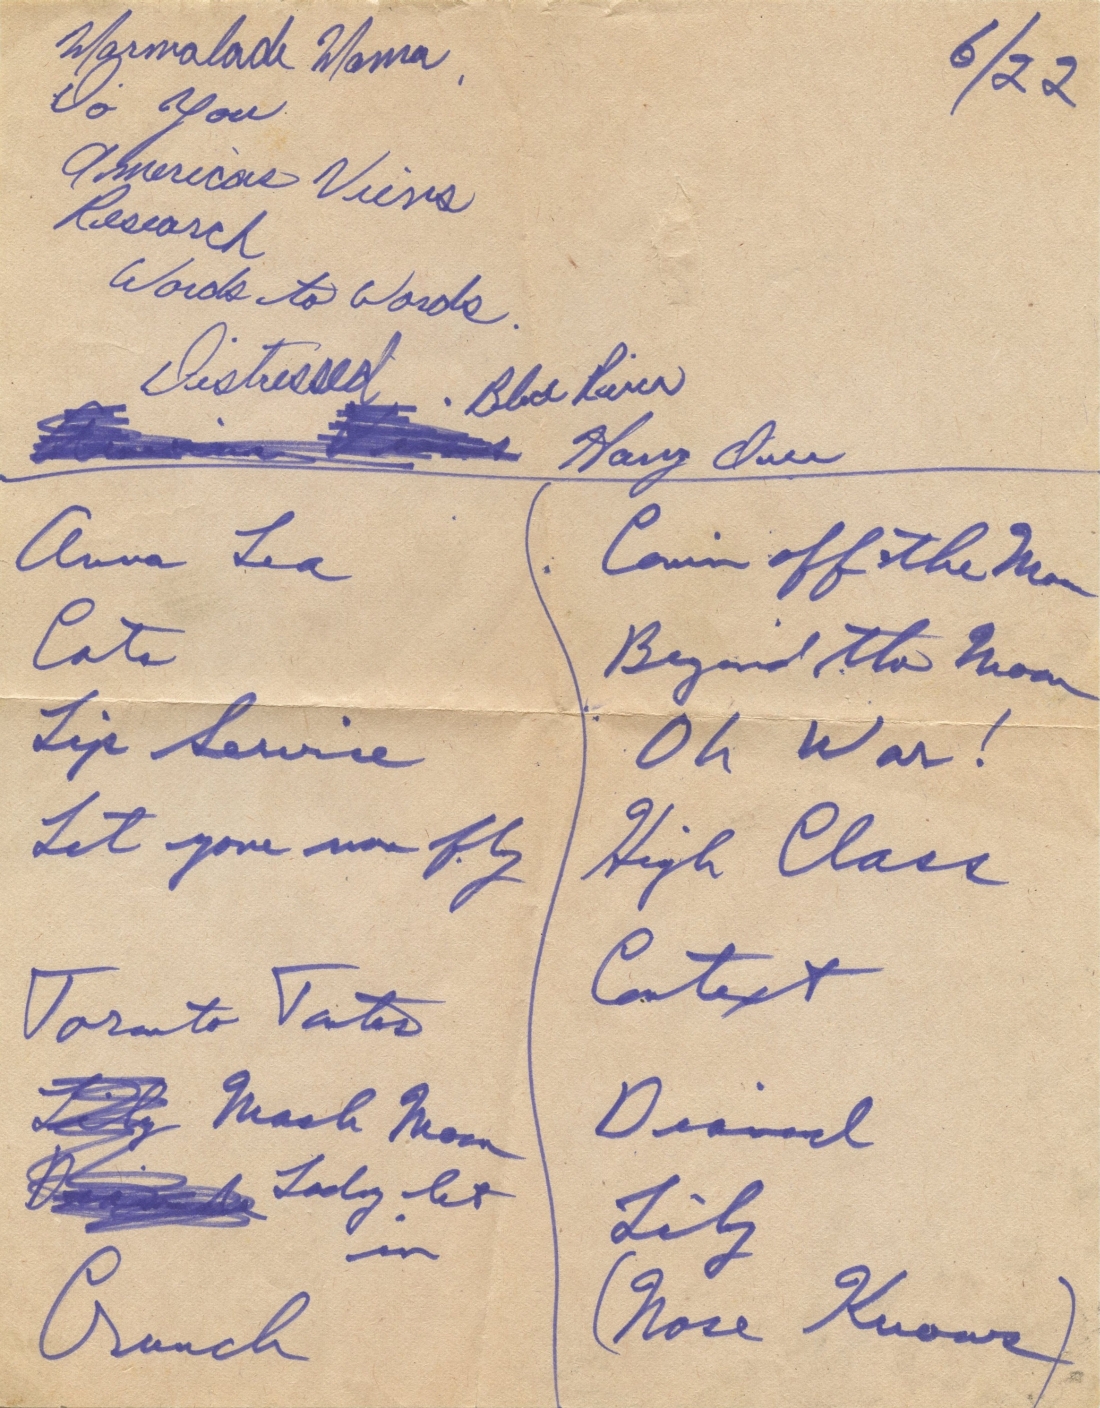 6/22
Marmalade Mama,
Do You
Americas Views
Research
Words to Words.
Distressed . Blue River
Hang Over
Anna Lea
Cats
Lip Service
Let your nose fly
Toronto Tantes
Mash Moon
Lady let
in
Crunch
Comin off the Moon
Beyond the Moon
Oh War!
High Class
Context
Lily
(Nose Knows)